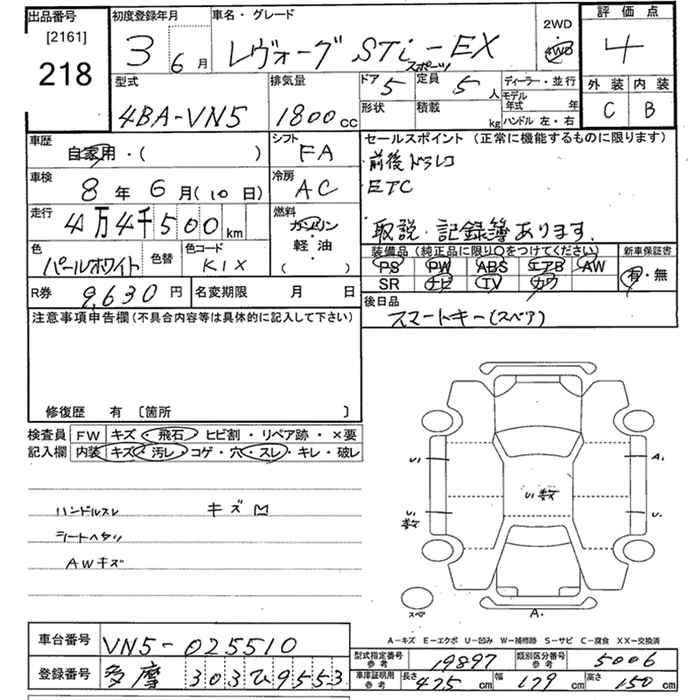 出品番号 [2161] 218
初度登録年月 3 6月
車名・グレード レヴォーグ STi-EX スポーツ
2WD 4WD
評価点 4
外装 C 内装 B
型式 4BA-VN5
排気量 1800cc
ドア 5 定員 5人
形状 積載 kg
ディーラー・並行
モデル年式 年
ハンドル 左・右
車歴 自家用・( )
シフト FA
車検 8年 6月(10日)
冷房 AC
走行 4万4千500km
燃料 ガソリン 軽油 ( )
色 パールホワイト 色替 色コード K1X
R券 9,630円 名変期限 月 日
セールスポイント (正常に機能するものに限ります)
前後ドラレコ
ETC
取説・記録簿あります.
装備品(純正品に限り○をつけてください)
PS PW ABS エアB AW
SR ナビ TV カワ
新車保証書 有・無
後日品
スマートキー(スペア)
注意事項申告欄(不具合内容等は具体的に記入して下さい)
修復歴 有 〔箇所 〕
検査員 FW キズ・飛石・ヒビ割・リペア跡・×要
記入欄 内装 キズ・汚レ・コゲ・穴・スレ・キレ・破レ
ハンドルスレ キズ
シートヘタリ
AWキズ
U1 A1
U1数々
U1数々 U1
スペア A1
A-キズ E-エクボ U-凹み W-補修跡 S-サビ C-腐食 XX-交換済
車台番号 VN5-025510
登録番号 多摩 303 ひ 9553
型式指定番号 参考 19897 類別区分番号 参考 5006
車庫証明用 参考 長さ 475cm 幅 179cm 高さ 150cm